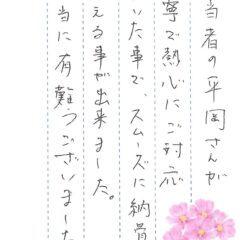 当者の平岡さんが
寧で熱心にご対応
いた事で、スムーズに納骨
える事が出来ました。
当に有難うございました